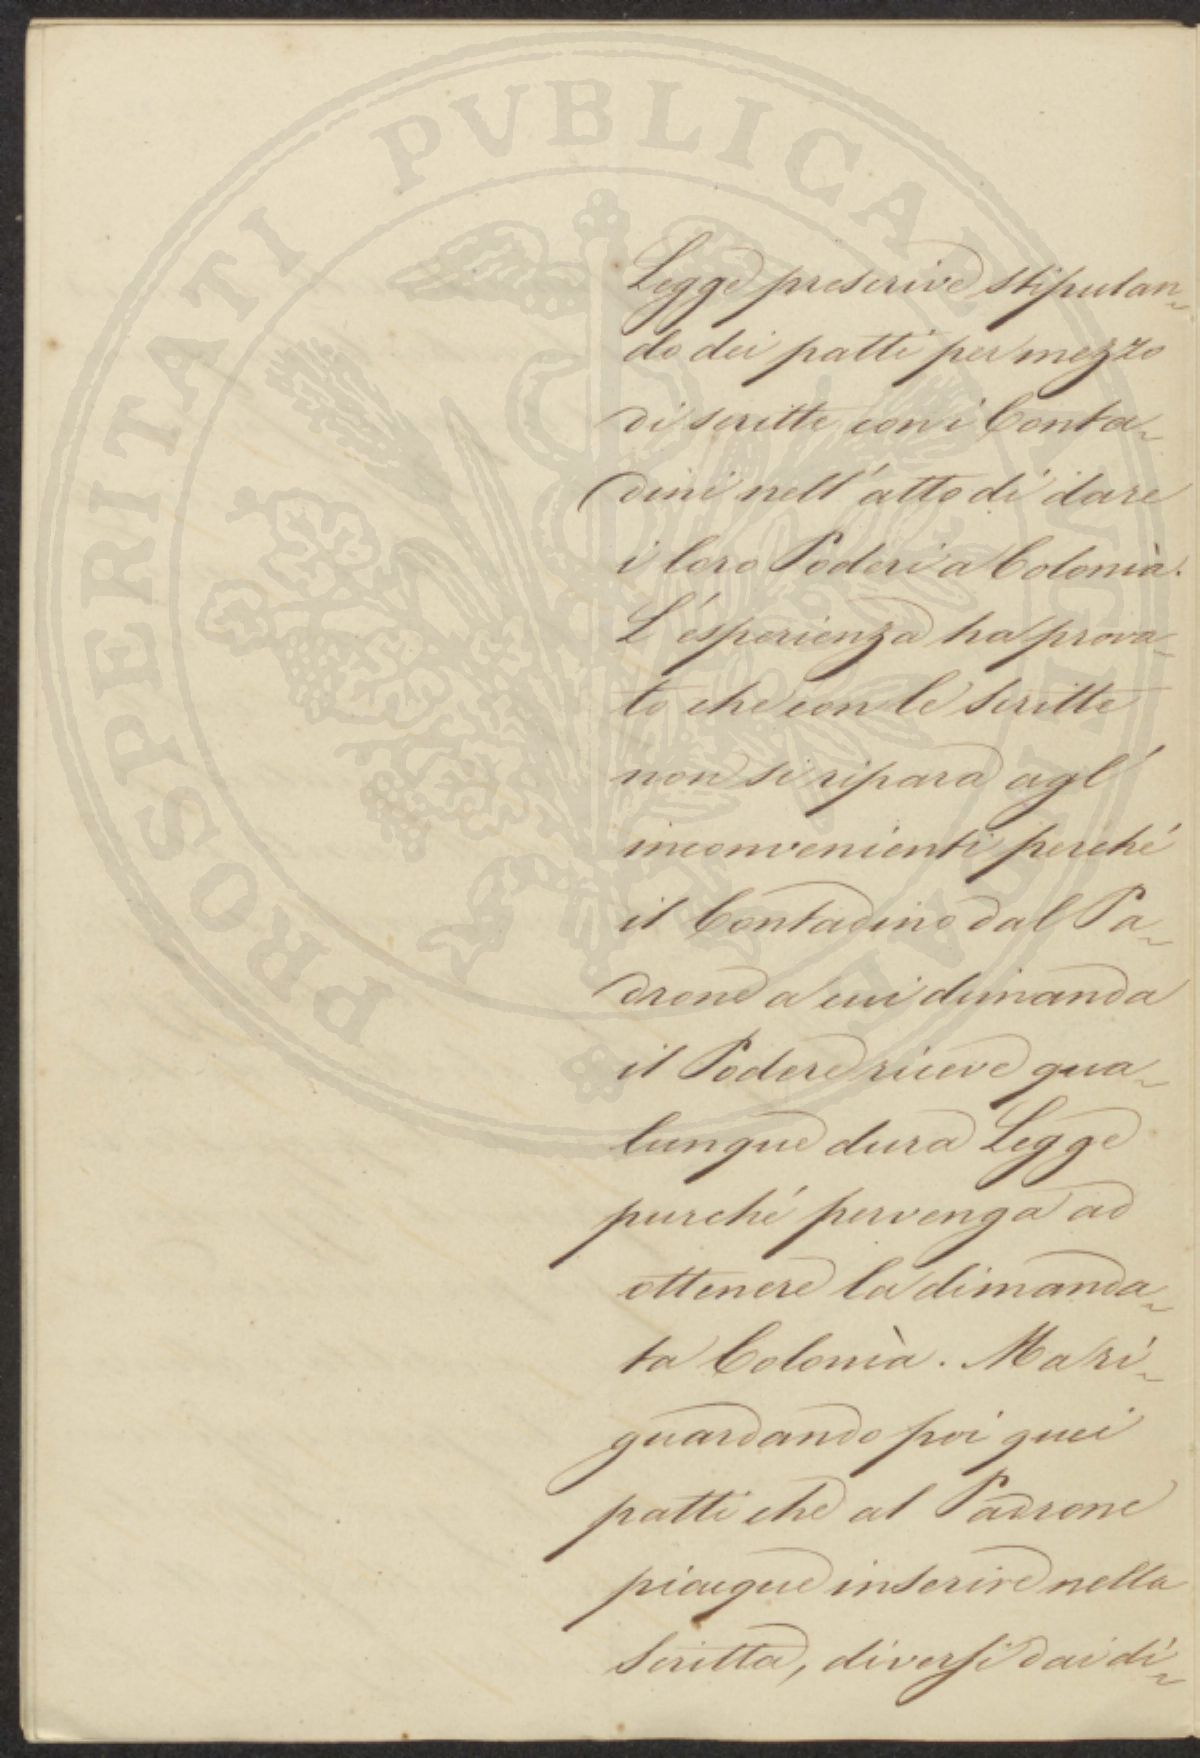 PROSPERITATI PVBLICAE AVGENDAE
Legge prescrive stipulan-
do dei patti per mezzo
di scritte con i Conta-
dini nell'atto di dare
i loro Poderi a Colonìa.
L'esperienza ha prova-
to che con le Scritte
non si ripara agl'
inconvenienti perché
il Contadino dal Pa-
drone a cui dimanda
il Podere riceve qua-
lunque dura Legge
purché pervenga ad
ottenere la dimanda-
ta Colonìa. Ma ri-
guardando poi quei
patti che al Padrone
piacque inserire nella
Scritta, diversi dai di-